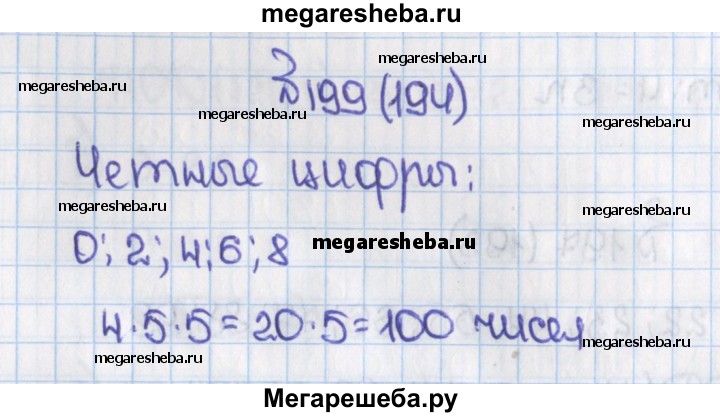 megaresheba.ru
megaresheba.ru
megaresheba.ru
№199 (194)
megaresheba.ru
megaresheba.ru
Четные цифры:
megaresheba.ru
megaresheba.ru
0; 2; 4; 6; 8
megaresheba.ru
4·5·5=20·5=100 чисел
megaresheba.ru
megaresheba.ru
Мегарешеба.ру